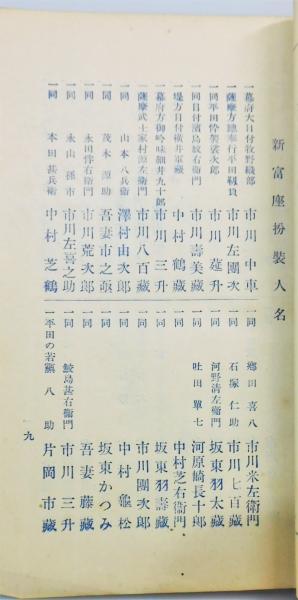 新富座扮装人名
一幕府大目付牧野織部 市川中車
一薩摩方總奉行平田靱負 市川左團次
一同平田伜袈裟次郎 市川莚升
一同目付濱島紋右衞門 市川壽美藏
一堤方目付横井軍藏 中村鶴藏
一幕府方御吟味細井九十郎 市川三升
一薩摩武士家村源左衞門 市川八百藏
一同 山本八兵衞 澤村由次郎
一同 茂木源助 吾妻市之亟
一同 永田伴右衞門 市川荒次郎
一同 永山孫市 市川左喜之助
一同 本田甚兵衞 中村芝鶴
一同 郷田喜八 市川米左衞門
一同 石塚仁助 市川七百藏
一同 河野清左衞門 坂東羽太藏
一同 吐田單七 河原崎長十郎
一同 中村芝右衞門
一同 坂東羽壽藏
一同 市川團次郎
一同 中村龜松
一同 坂東かつみ
一同 吾妻藤藏
一同 鮫島甚右衞門 市川三升
一平田の若黨 八助 片岡市藏
九